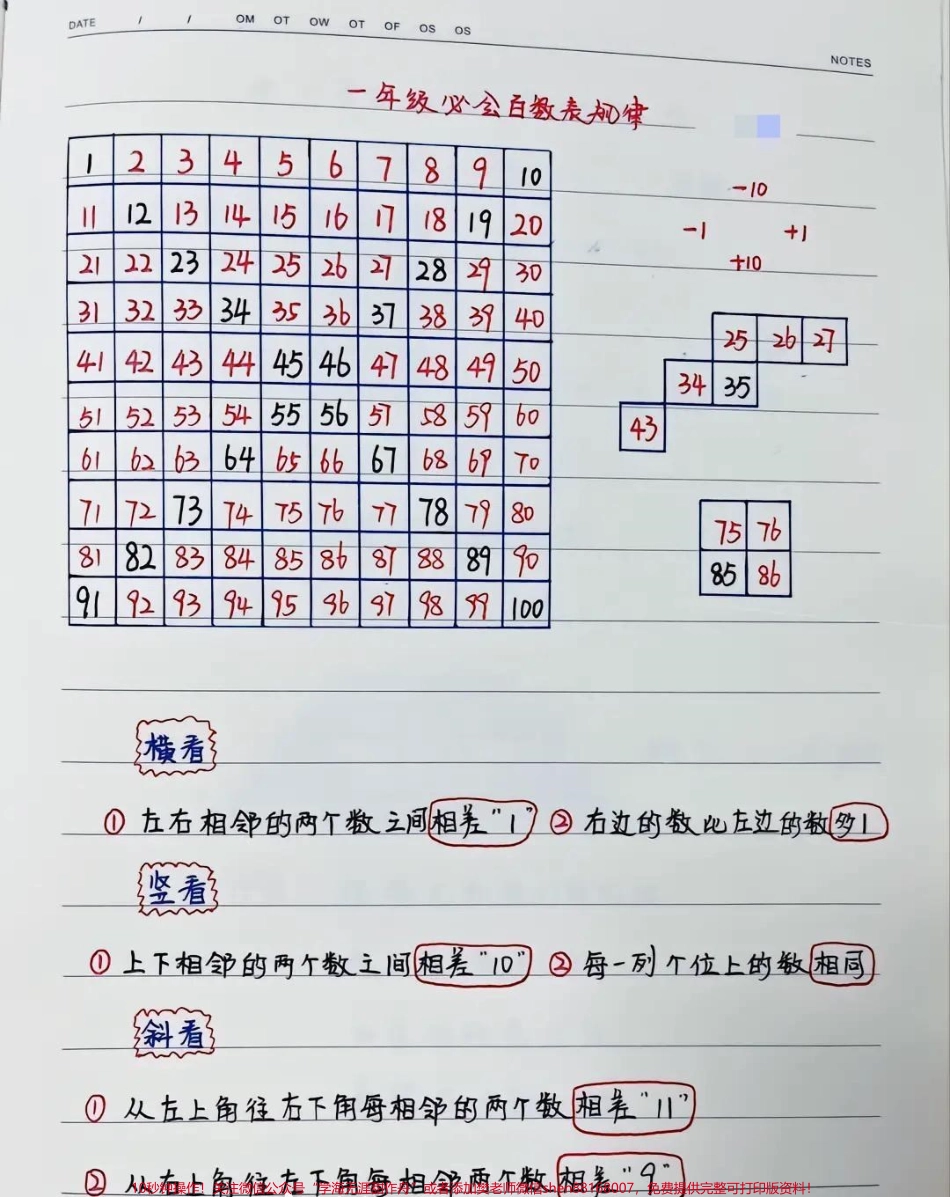 DATE / / OM OT OW OT OF OS OS
NOTES
一年级必会百数表规律
1 2 3 4 5 6 7 8 9 10
11 12 13 14 15 16 17 18 19 20
21 22 23 24 25 26 27 28 29 30
31 32 33 34 35 36 37 38 39 40
41 42 43 44 45 46 47 48 49 50
51 52 53 54 55 56 57 58 59 60
61 62 63 64 65 66 67 68 69 70
71 72 73 74 75 76 77 78 79 80
81 82 83 84 85 86 87 88 89 90
91 92 93 94 95 96 97 98 99 100
-10
-1 +1
+10
25 26 27
34 35
43
75 76
85 86
横看
① 左右相邻的两个数之间相差"1" ② 右边的数比左边的数多1
竖看
① 上下相邻的两个数之间相差"10" ② 每一列个位上的数相同
斜看
① 从左上角往右下角每相邻的两个数相差"11"
② 从右上角往左下角每相邻两个数相差"9"
免费提供完整可打印版资料!